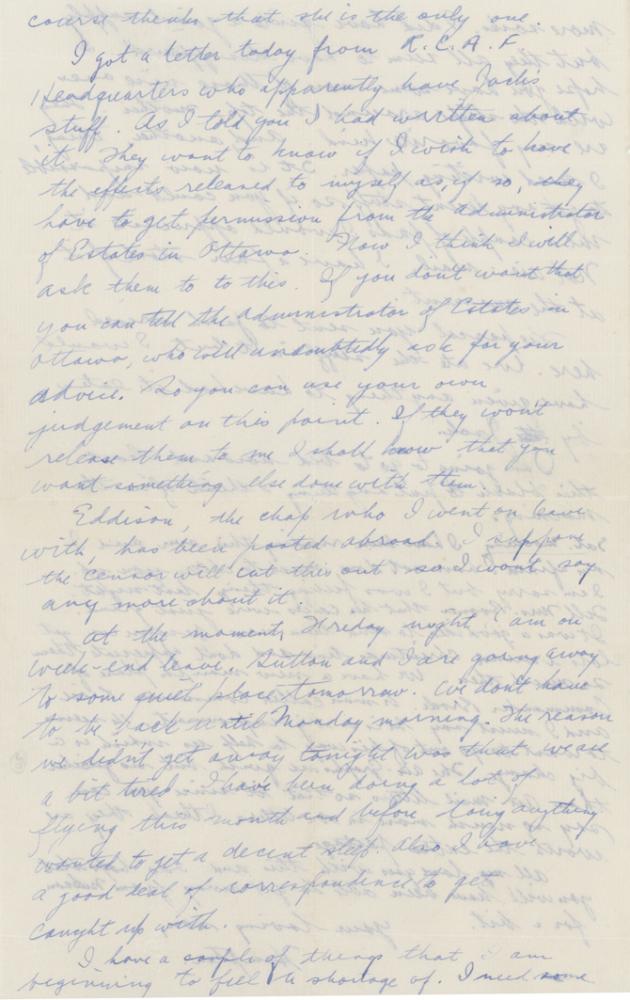 course thinks that she is the only one.
I got a letter today from R.C.A.F
Headquarters who apparently have Jacks
stuff. As I told you I had written about
it. They want to know if I wish to have
the effects released to myself as, if so, they
have to get permission from the administrator
of Estates in Ottawa. Now I think I will
ask them to to this. If you don't want that
you can tell the administrator of Estates in
Ottawa, who will undoubtedly ask for your
advice. So you can use your own
judgement on this point. If they won't
release them to me I shall know that you
want something else done with them.
Eddison, the chap who I went on leave
with, has been posted abroad. I suppose
the censor will cut this out so I won't say
any more about it.
At the moment, Friday night I am on
week-end leave. Sutton and I are going away
to some quiet place tomorrow. We don't have
to be back until Monday morning. The reason
we didn't get away tonight was that we are
a bit tired. I have been doing a lot of
flying this month and before long anything
wanted to get a decent sleep. Also I have
a good deal of correspondence to get
caught up with.
I have a couple of things that I am
beginning to feel a shortage of. I need some